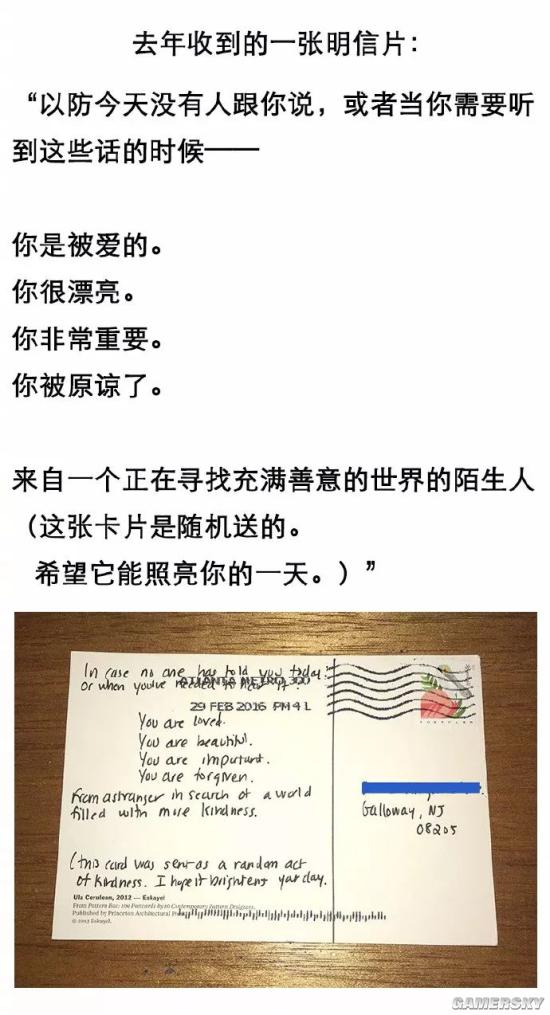 去年收到的一张明信片：
“以防今天没有人跟你说，或者当你需要听
到这些话的时候——
你是被爱的。
你很漂亮。
你非常重要。
你被原谅了。
来自一个正在寻找充满善意的世界的陌生人
（这张卡片是随机送的。
希望它能照亮你的一天。）”
In case no one has told you today:
or when you've needed to hear it:
ATLANTA METRO 300
29 FEB 2016 PM 4 L
You are loved.
You are beautiful.
You are important.
You are forgiven.
From a stranger in search of a world
filled with more kindness.
Galloway, NJ
08205
(this card was sent as a random act
of kindness. I hope it brightens your day.
Ula Cerulean, 2012 — Eskayel
From Pattern Box: 100 Postcards by 10 Contemporary Pattern Designers.
Published by Princeton Architectural
© 2013 Eskayel.
GAMERSKY